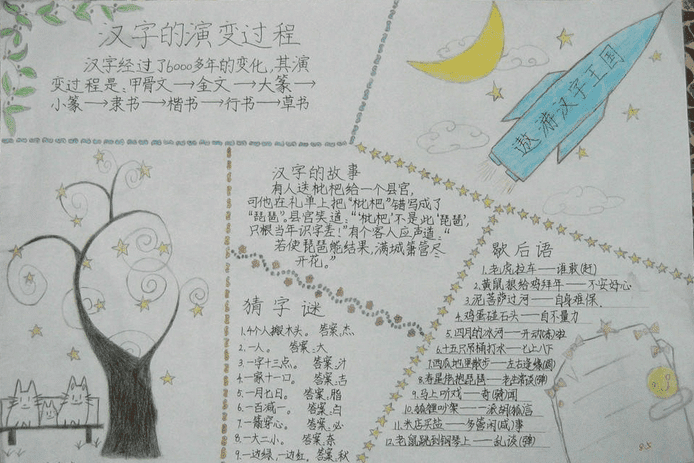 汉字的演变过程
汉字经过了6000多年的变化,其演
变过程是:甲骨文→金文→大篆→
小篆→隶书→楷书→行书→草书
遨游汉字王国
汉字的故事
有人送枇杷给一个县官,
可他在礼单上把“枇杷”错写成了
“琵琶”。县官笑道:“‘枇杷’不是此‘琵琶’,
只恨当年识字差!”有个客人应声道:“
若使琵琶能结果,满城箫管尽
开花。”
猜字谜
1.4个人搬木头。 答案:杰
2.一人。 答案:大
3.一字十三点。 答案:汁
4.一家十一口。 答案:吉
5.一月七日。 答案:脂
6.一百减一。 答案:白
7.一箭穿心。 答案:必
8.一大二小。 答案:奈
9.一边绿,一边红。 答案:秋
歇后语
1.老虎拉车——谁敢(赶)
2.黄鼠狼给鸡拜年——不安好心
3.泥菩萨过河——自身难保
4.鸡蛋碰石头——自不量力
5.四月的冰河——开动(冻)啦
6.十五只吊桶打水——七上八下
7.西瓜地里散步——左右逢缘(圆)
8.寿星抱琵琶——老生常谈(弹)
9.马上听戏——奇(骑)闻
10.狐狸吵架——一派胡言
11.米店买盐——多管闲(咸)事
12.老鼠跳到钢琴上——乱谈(弹)